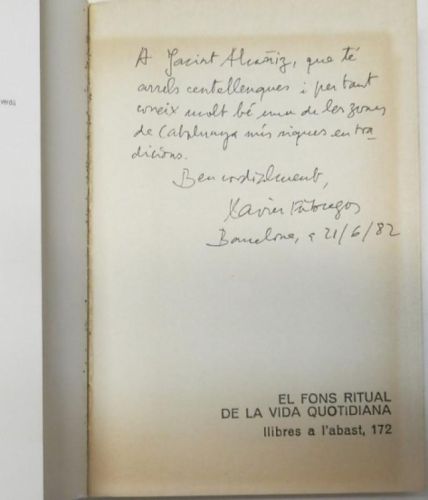 A Jacint Alcañiz, que té
arrels centellenques i per tant
coneix molt bé una de les zones
de Catalunya més riques en tra-
dicions.
Ben cordialment,
Xavier Fàbregas
Barcelona, a 21/6/82
EL FONS RITUAL
DE LA VIDA QUOTIDIANA
llibres a l'abast, 172